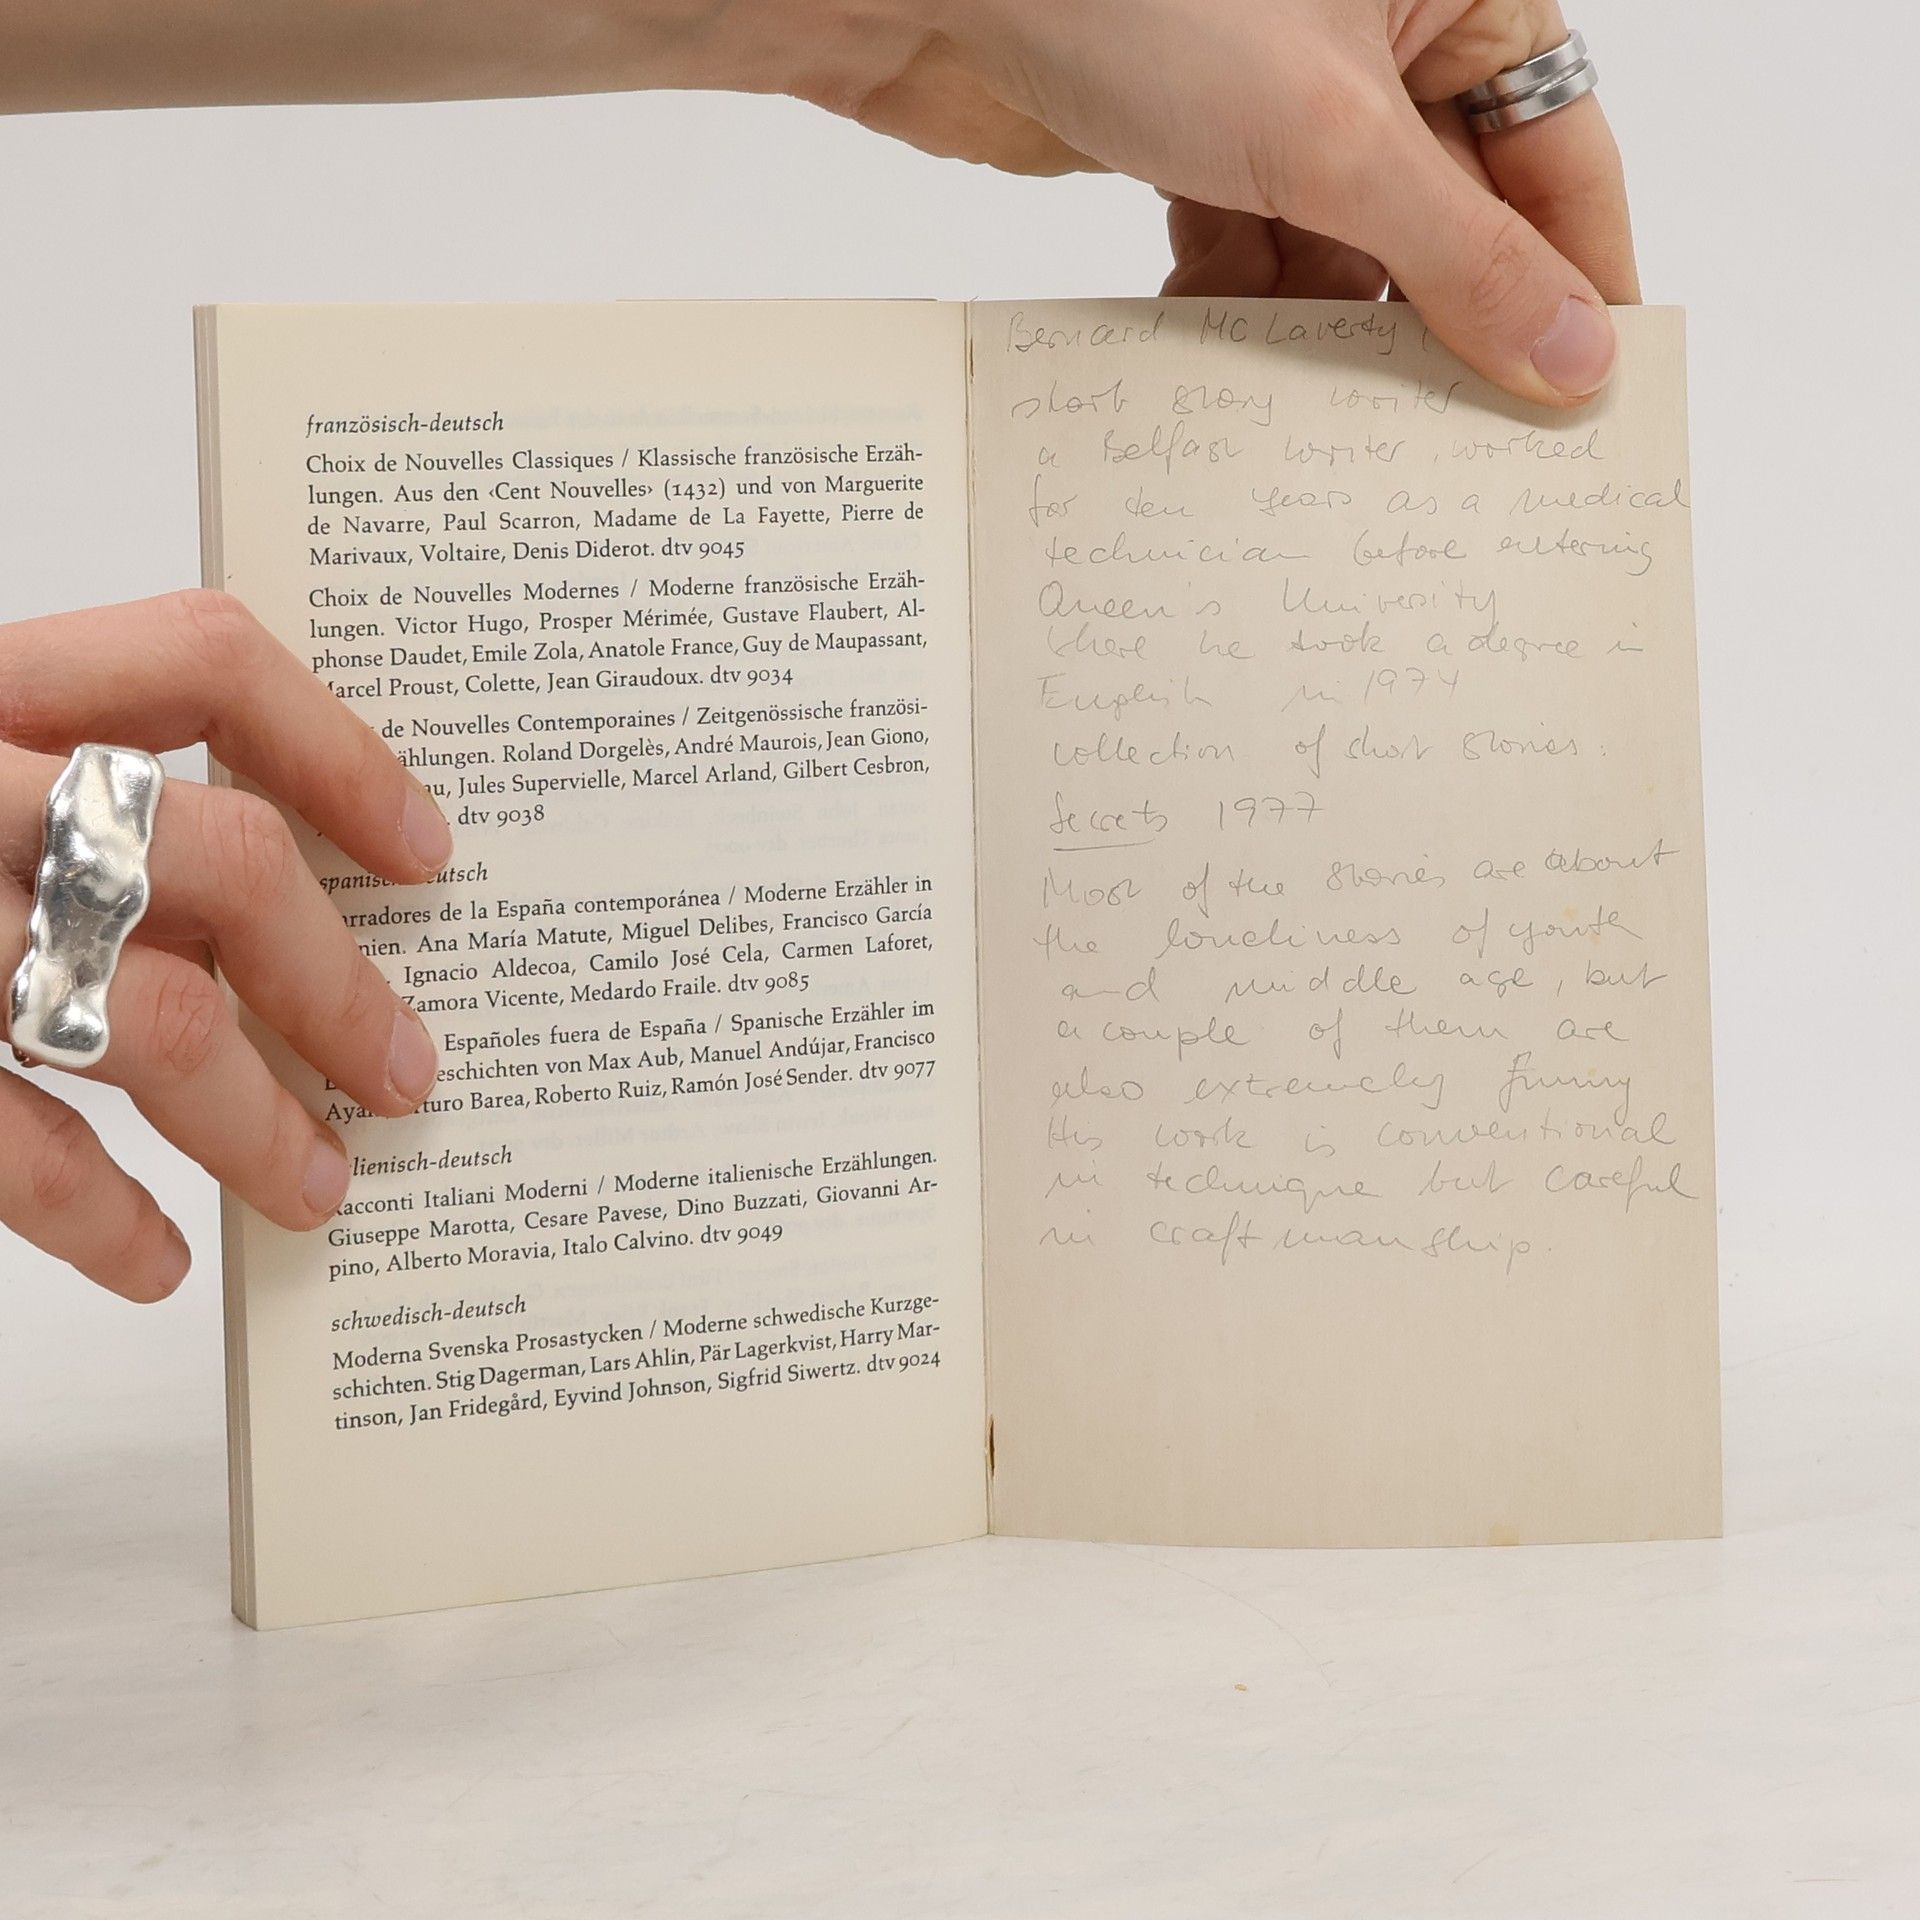 französisch-deutsch
Choix de Nouvelles Classiques / Klassische französische Erzäh-
lungen. Aus den ‹Cent Nouvelles› (1432) und von Marguerite
de Navarre, Paul Scarron, Madame de La Fayette, Pierre de
Marivaux, Voltaire, Denis Diderot. dtv 9045
Choix de Nouvelles Modernes / Moderne französische Erzäh-
lungen. Victor Hugo, Prosper Mérimée, Gustave Flaubert, Al-
phonse Daudet, Emile Zola, Anatole France, Guy de Maupassant,
Marcel Proust, Colette, Jean Giraudoux. dtv 9034
de Nouvelles Contemporaines / Zeitgenössische französi-
ählungen. Roland Dorgelès, André Maurois, Jean Giono,
au, Jules Supervielle, Marcel Arland, Gilbert Cesbron,
. dtv 9038
spanisch-deutsch
arradores de la España contemporánea / Moderne Erzähler in
nien. Ana María Matute, Miguel Delibes, Francisco García
, Ignacio Aldecoa, Camilo José Cela, Carmen Laforet,
Zamora Vicente, Medardo Fraile. dtv 9085
Españoles fuera de España / Spanische Erzähler im
eschichten von Max Aub, Manuel Andújar, Francisco
Aya rturo Barea, Roberto Ruiz, Ramón José Sender. dtv 9077
lienisch-deutsch
Racconti Italiani Moderni / Moderne italienische Erzählungen.
Giuseppe Marotta, Cesare Pavese, Dino Buzzati, Giovanni Ar-
pino, Alberto Moravia, Italo Calvino. dtv 9049
schwedisch-deutsch
Moderna Svenska Prosastycken / Moderne schwedische Kurzge-
schichten. Stig Dagerman, Lars Ahlin, Pär Lagerkvist, Harry Mar-
tinson, Jan Fridegård, Eyvind Johnson, Sigfrid Siwertz. dtv 9024
Bernard Mc Laverty
short story writer
a Belfast writer, worked
for ten years as a medical
technician before entering
Queen's University
where he took a degree in
English in 1974
collection of short stories:
Secrets 1977
Most of the stories are about
the loneliness of youth
and middle age, but
a couple of them are
also extremely funny
His work is conventional
in technique but careful
in craftmanship.